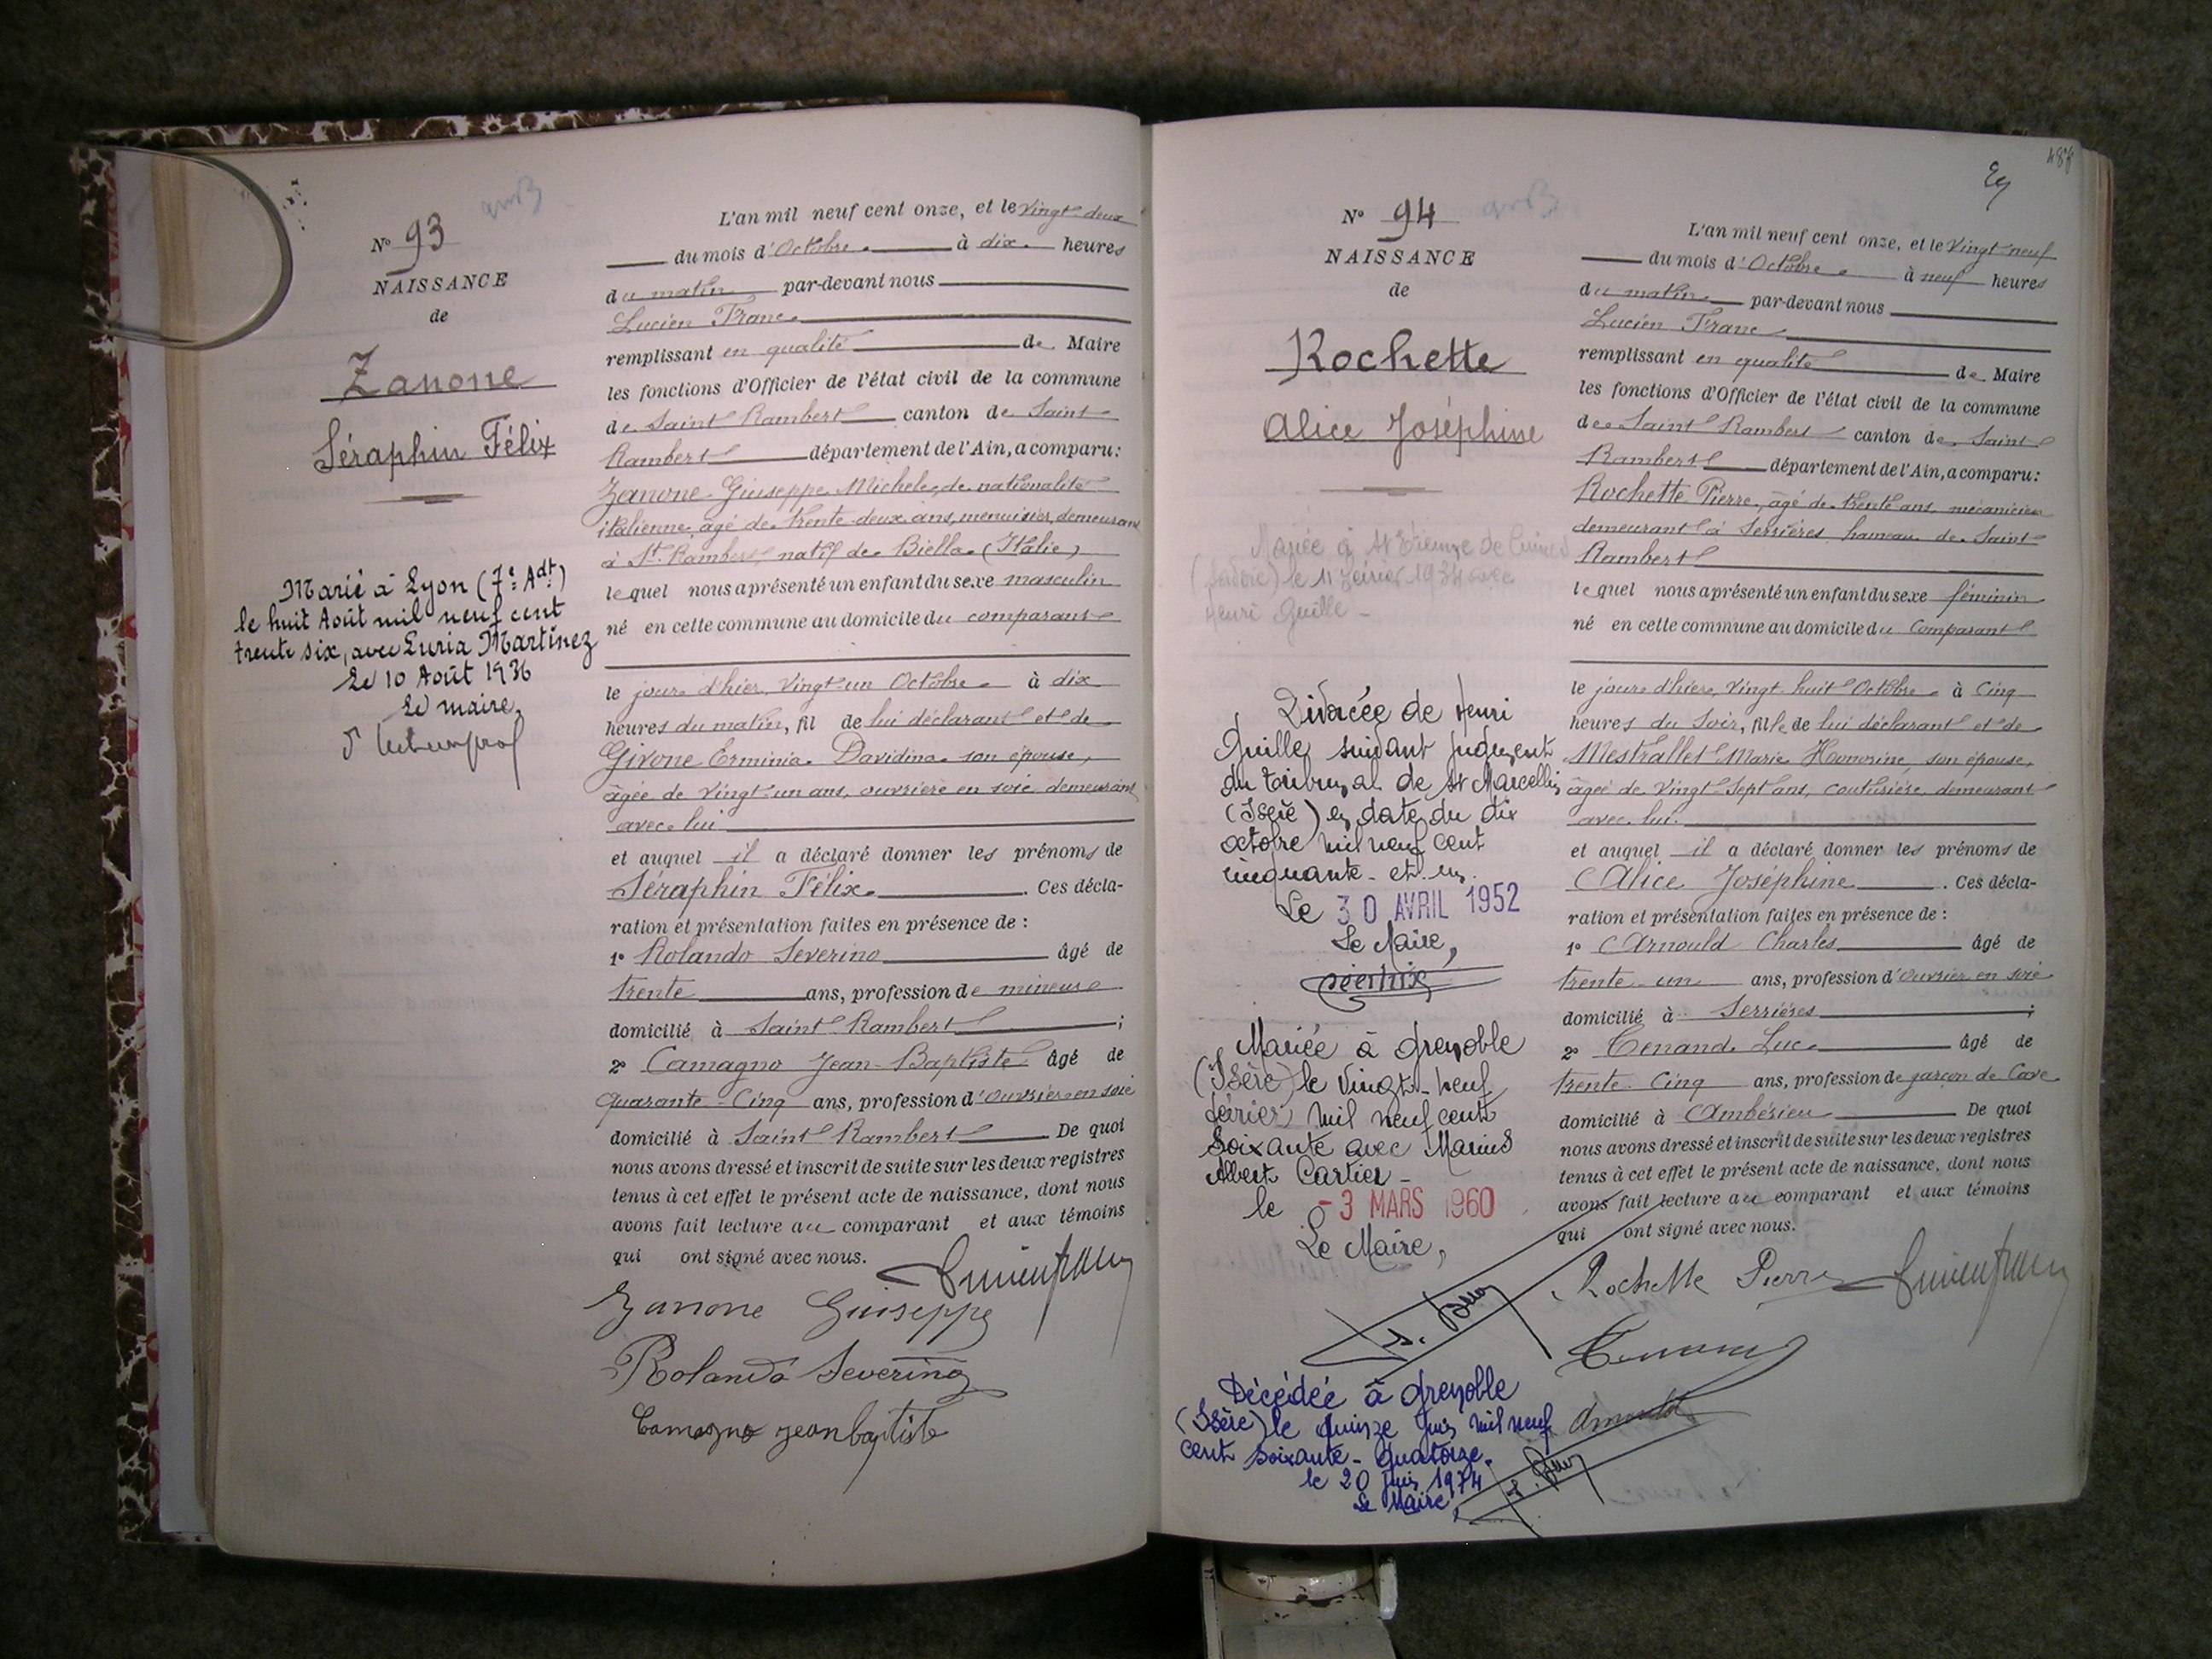 N° 93
NAISSANCE
de
Zanone
Séraphin Félix
Marié à Lyon (7e Adt)
le huit Août mil neuf cent
trente six, avec Luria Martinez
Le 10 Août 1936
Le maire,
L'an mil neuf cent onze, et le vingt deux
du mois d'Octobre à dix heures
du matin par-devant nous
Lucien Franc
remplissant en qualité de Maire
les fonctions d'Officier de l'état civil de la commune
de Saint Rambert canton de Saint
Rambert département de l'Ain, a comparu:
Zanone Giuseppe Michele, de nationalité
italienne, âgé de trente-deux ans, menuisier, demeurant
à St Rambert, natif de Biella (Italie)
lequel nous a présenté un enfant du sexe masculin
né en cette commune au domicile du comparant
le jour d'hier, vingt-un Octobre à dix
heures du matin, fil de lui déclarant et de
Girone Erminia Davidina son épouse,
âgée de vingt-un ans, ouvrière en soie demeurant
avec lui
et auquel il a déclaré donner les prénoms de
Séraphin Félix. Ces décla-
ration et présentation faites en présence de :
1° Rolando Severino âgé de
trente ans, profession de mineur
domicilié à Saint Rambert ;
2° Camagno Jean-Baptiste âgé de
quarante-Cinq ans, profession d'ouvrier en soie
domicilié à Saint Rambert De quoi
nous avons dressé et inscrit de suite sur les deux registres
tenus à cet effet le présent acte de naissance, dont nous
avons fait lecture au comparant et aux témoins
qui ont signé avec nous.
Zanone Guiseppe
Rolando Severino
Camagno jeanbaptiste
488
N° 94
NAISSANCE
de
Rochette
Alice Joséphine
(Savoie) le 11 février 1934 avec
Henri Guille -
Divorcée de Henri
Guille suivant jugement
du tribunal de St Marcellin
(Isère) en date du dix
octobre mil neuf cent
cinquante-et-un.
Le 30 AVRIL 1952
Le Maire,
Mariée à Grenoble
(Isère) le vingt-neuf
février mil neuf cent
soixante avec Marius
Albert Cartier -
le -3 MARS 1960
Le Maire,
Décédée à Grenoble
(Isère) le quinze juin mil neuf
cent soixante-quatorze.
le 20 juin 1974
Le Maire
L'an mil neuf cent onze, et le vingt neuf
du mois d'Octobre à neuf heures
du matin par-devant nous
Lucien Franc
remplissant en qualité de Maire
les fonctions d'Officier de l'état civil de la commune
de Saint Rambert canton de Saint
Rambert département de l'Ain, a comparu:
Rochette Pierre, âgé de trente ans, mécanicien
demeurant à Serrières hameau de Saint
Rambert
lequel nous a présenté un enfant du sexe féminin
né en cette commune au domicile du Comparant
le jour d'hier, vingt huit Octobre à Cinq
heures du Soir, fille de lui déclarant et de
Mestrallet Marie Honorine, son épouse,
âgée de vingt sept ans, couturière, demeurant
avec lui.
et auquel il a déclaré donner les prénoms de
Alice Joséphine. Ces décla-
ration et présentation faites en présence de :
1° Arnould Charles âgé de
trente un ans, profession d'ouvrier en soie
domicilié à Serrières ;
2° Tenand Luc âgé de
trente-Cinq ans, profession de garçon de Cave
domicilié à Ambérieu De quoi
nous avons dressé et inscrit de suite sur les deux registres
tenus à cet effet le présent acte de naissance, dont nous
avons fait lecture au comparant et aux témoins
qui ont signé avec nous.
Rochette Pierre